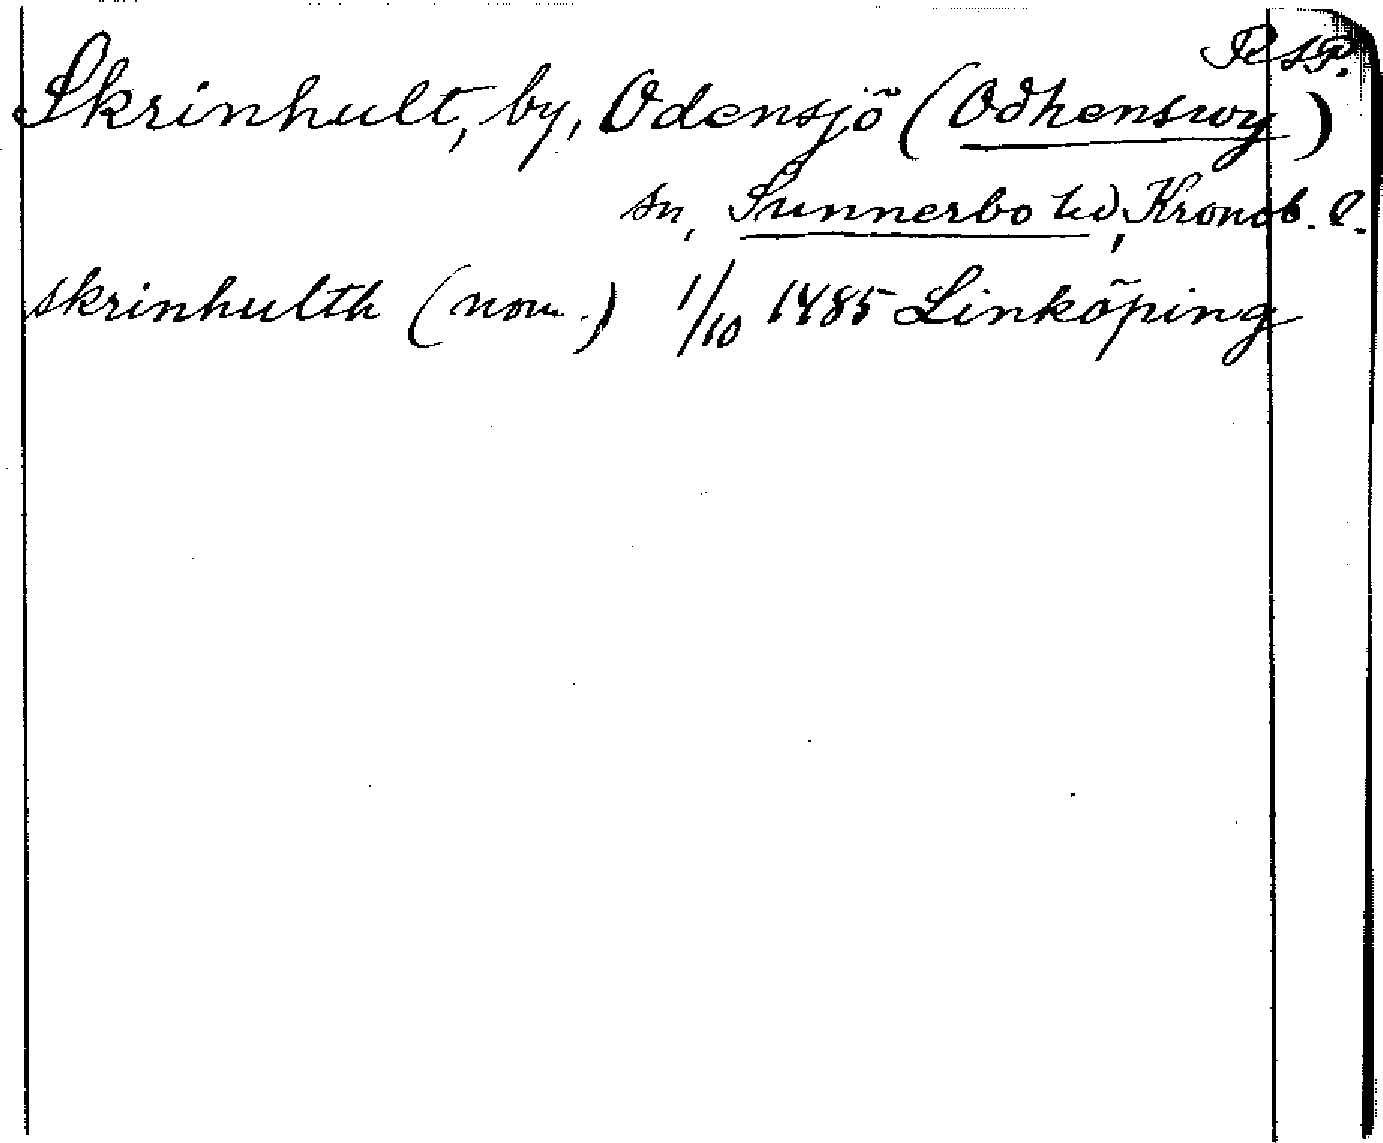 Skrinhult, by, Odensjö (Odhenswy)
sn, Sunnerbo hd, Kronob. l.
skrinhulth (nom.) 1/10 1485 Linköping